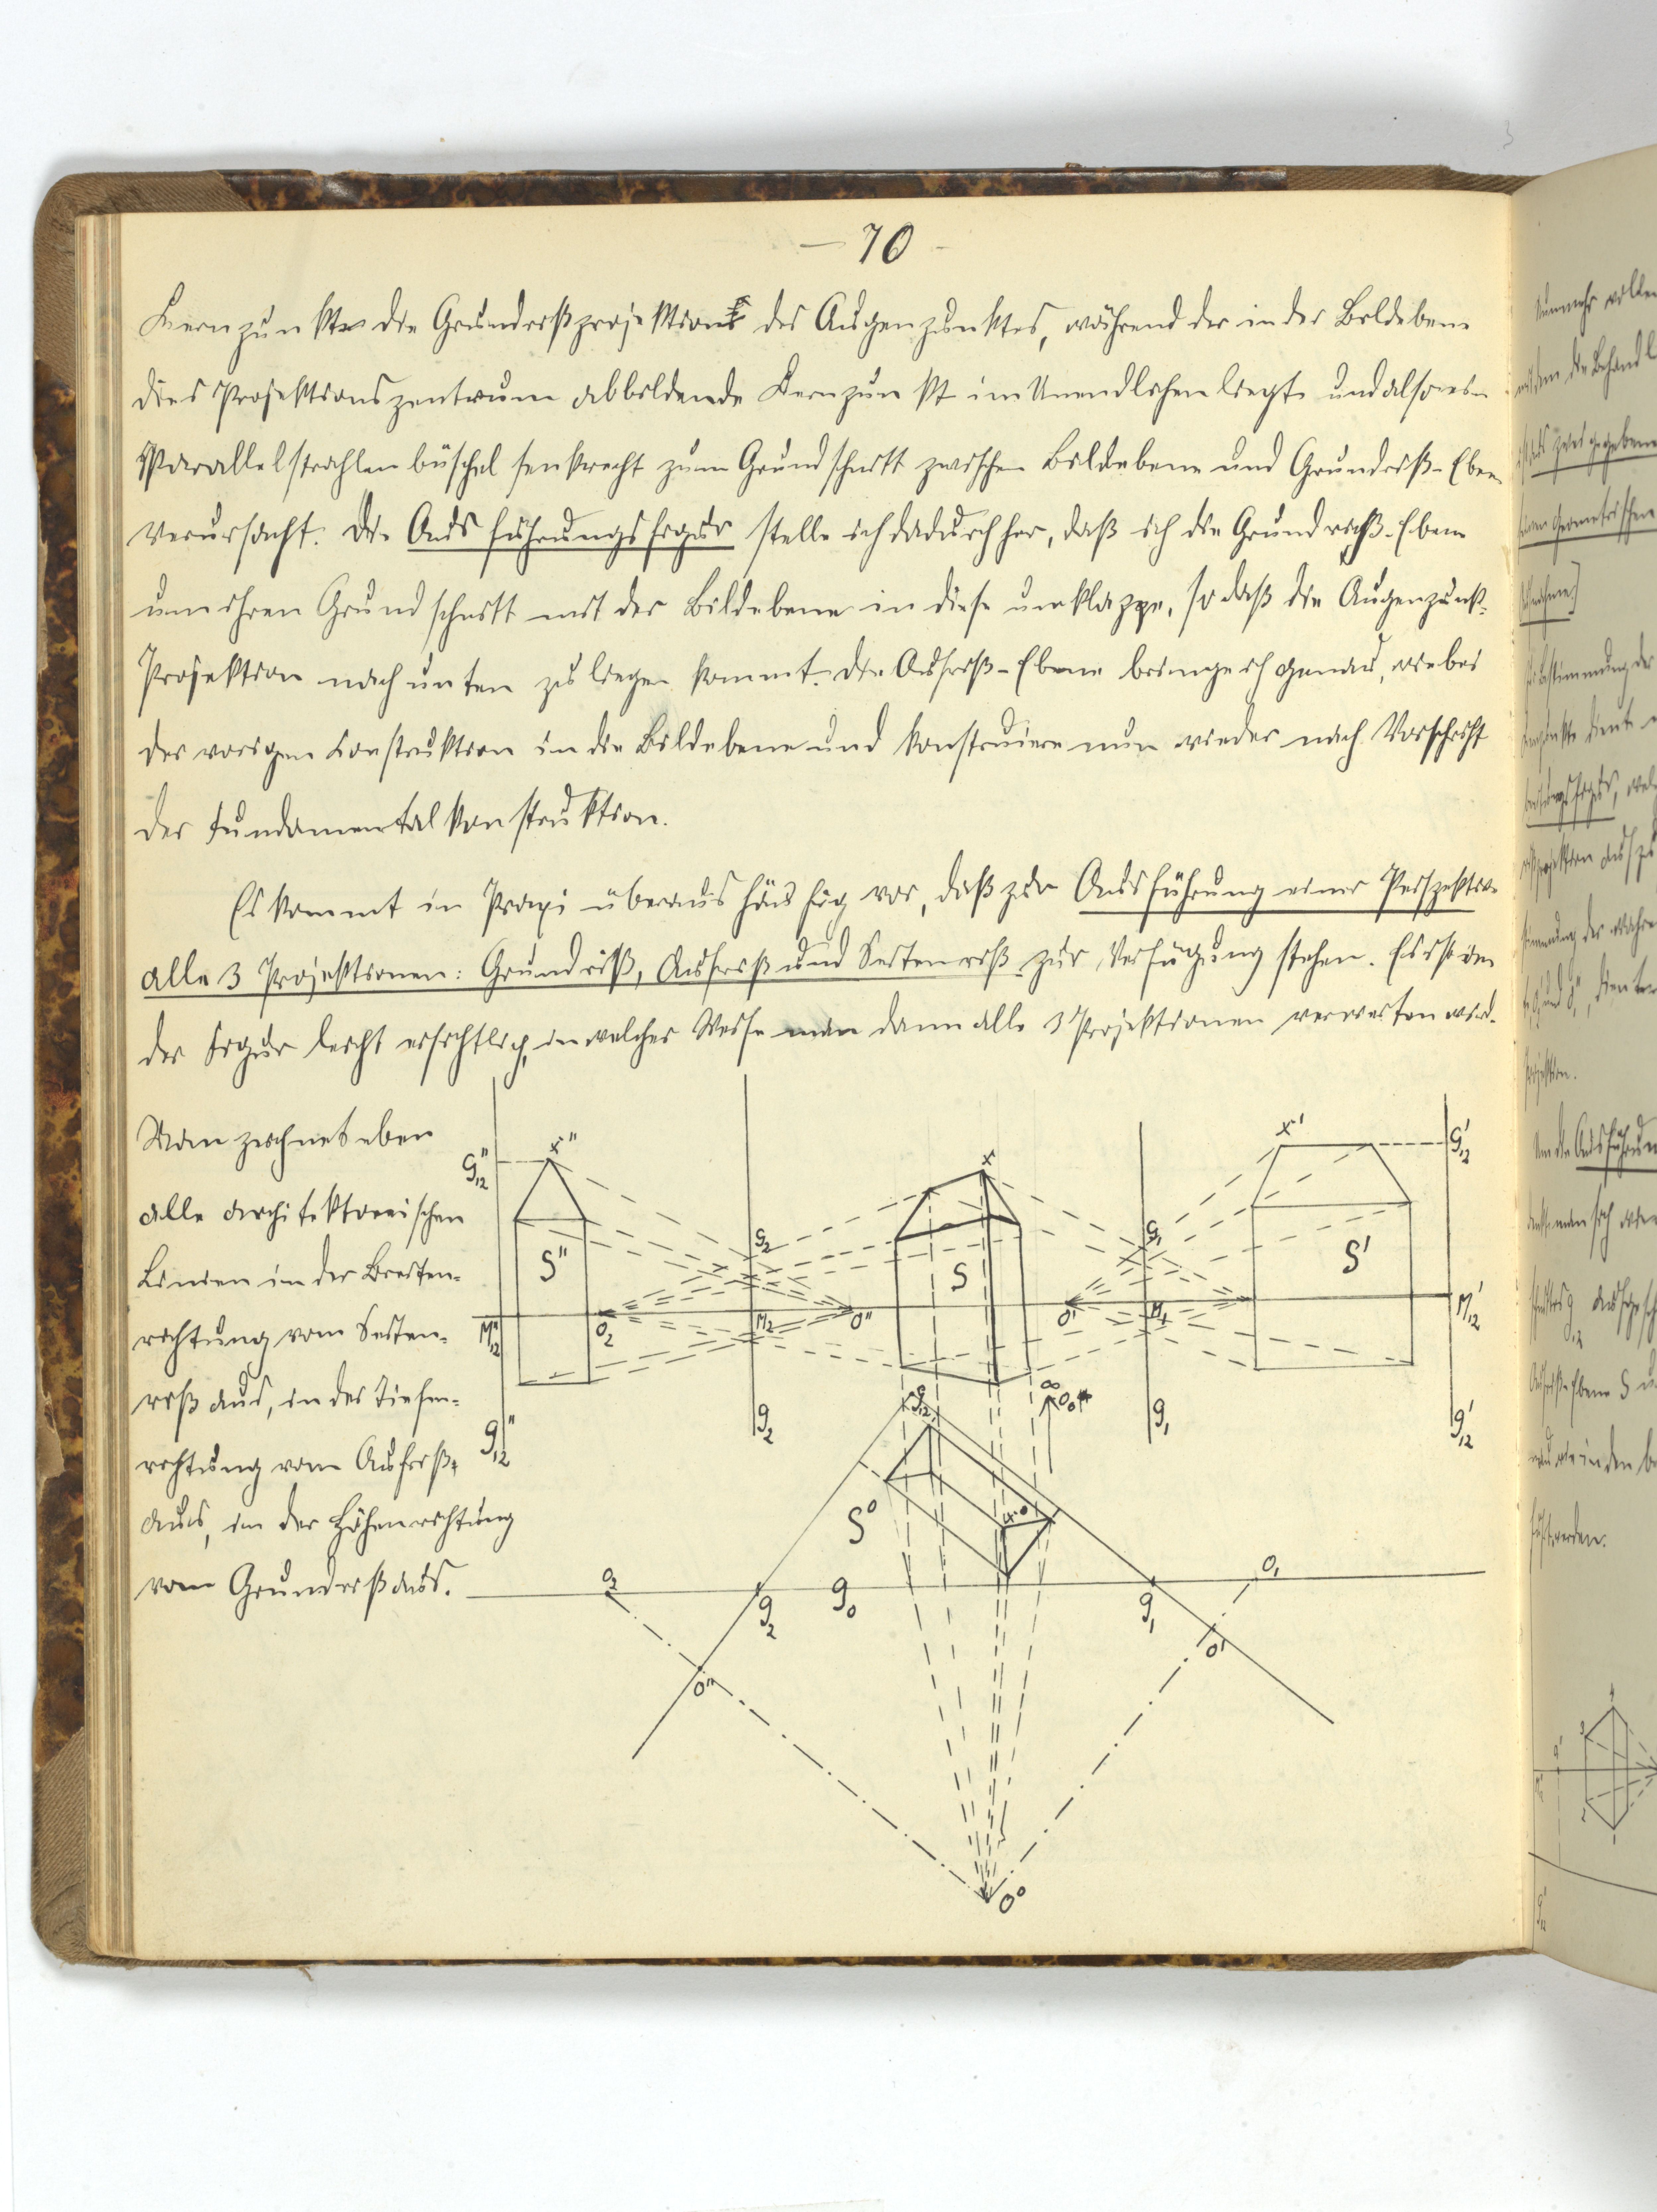 — 70 -
Kernpunkte die Grundrißprojektion des Augenpunktes, während der in der Bildebene
dies Projektionszentrum abbildende Kernpunkt im Unendlichen liegt und also ein
Parallelstrahlenbüschel senkrecht zum Grundschnitt zwischen Bildebene und Grundriß-Ebene
verursacht. Die Ausführungsfigur stelle ich dadurch her, daß ich die Grundriß-Ebene
um ihren Grundschnitt mit der Bildebene in diese umklappe, so daß die Augenpunkt-
Projektion nach unten zu liegen kommt. Die Aufriß-Ebene bringe ich genau, wie bei
der vorigen Konstruktion in die Bildebene und konstruiere nun wieder nach Vorschrift
der Fundamentalkonstruktion.
Es kommt in Praxi überaus häufig vor, daß zur Ausführung einer Perspektive
alle 3 Projektionen: Grundriß, Aufriß und Seitenriß zur Verfügung stehen. Es ist in
der Figur leicht ersichtlich, in welcher Weise man dann alle 3 Projektionen verwerten wird.
Man zeichnet eben
alle architektonischen
Linien in der Breiten-
richtung vom Seiten-
riß aus, in der Tiefen-
richtung vom Aufriß
aus, in der Höhenrichtung
vom Grundriß aus.
x" x x'
G"₁₂ G₂ G₁ G'₁₂
S" S S'
M"₁₂ O₂ M₂ O" O' M₁ M'₁₂
g"₁₂ g₂ g₁₂ ∞ O₀ g₁ g'₁₂
S⁰ x⁰
O₂ g₂ g₀ g₁ O₁
O" O'
O⁰